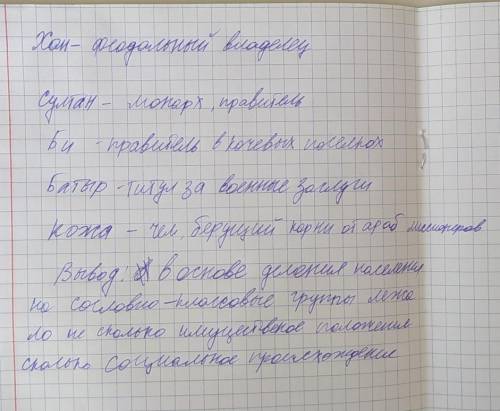 Хан - феодальный владелец
Султан - монарх, правитель
Би - правитель в кочевых поселках
Батыр - титул за военные заслуги
Кожа - чел, берущий корни от араб миссионеров
Вывод. В основе деления населения
на сословно-классовые группы лежа
ло не сколько имущественое положение
сколько социальное происхождение